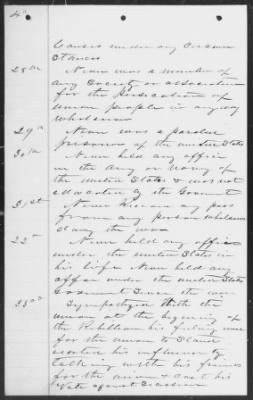 4th
Causes under any Circum
Stances
28th Never was a member of
any Society or association
for the persecution of
union people in any way
whatsoever
29th Never was a parolled
prisoner of the united States
30th Never held any office
in the Army or Navy of
the united States & was not
educated by the Goverment
31st Never Received any pass
from any person whatsoever
during the war
32nd Never held any office
under the united States in
his life Never held any
office under the united States
Goverment Since the war
33rd Sympathizes With the
union at the begining of
the Rebellion his feeling was
for the union to Stand
exerted his influence by
talking with his friends
for the union & cast his
Vote against Secession